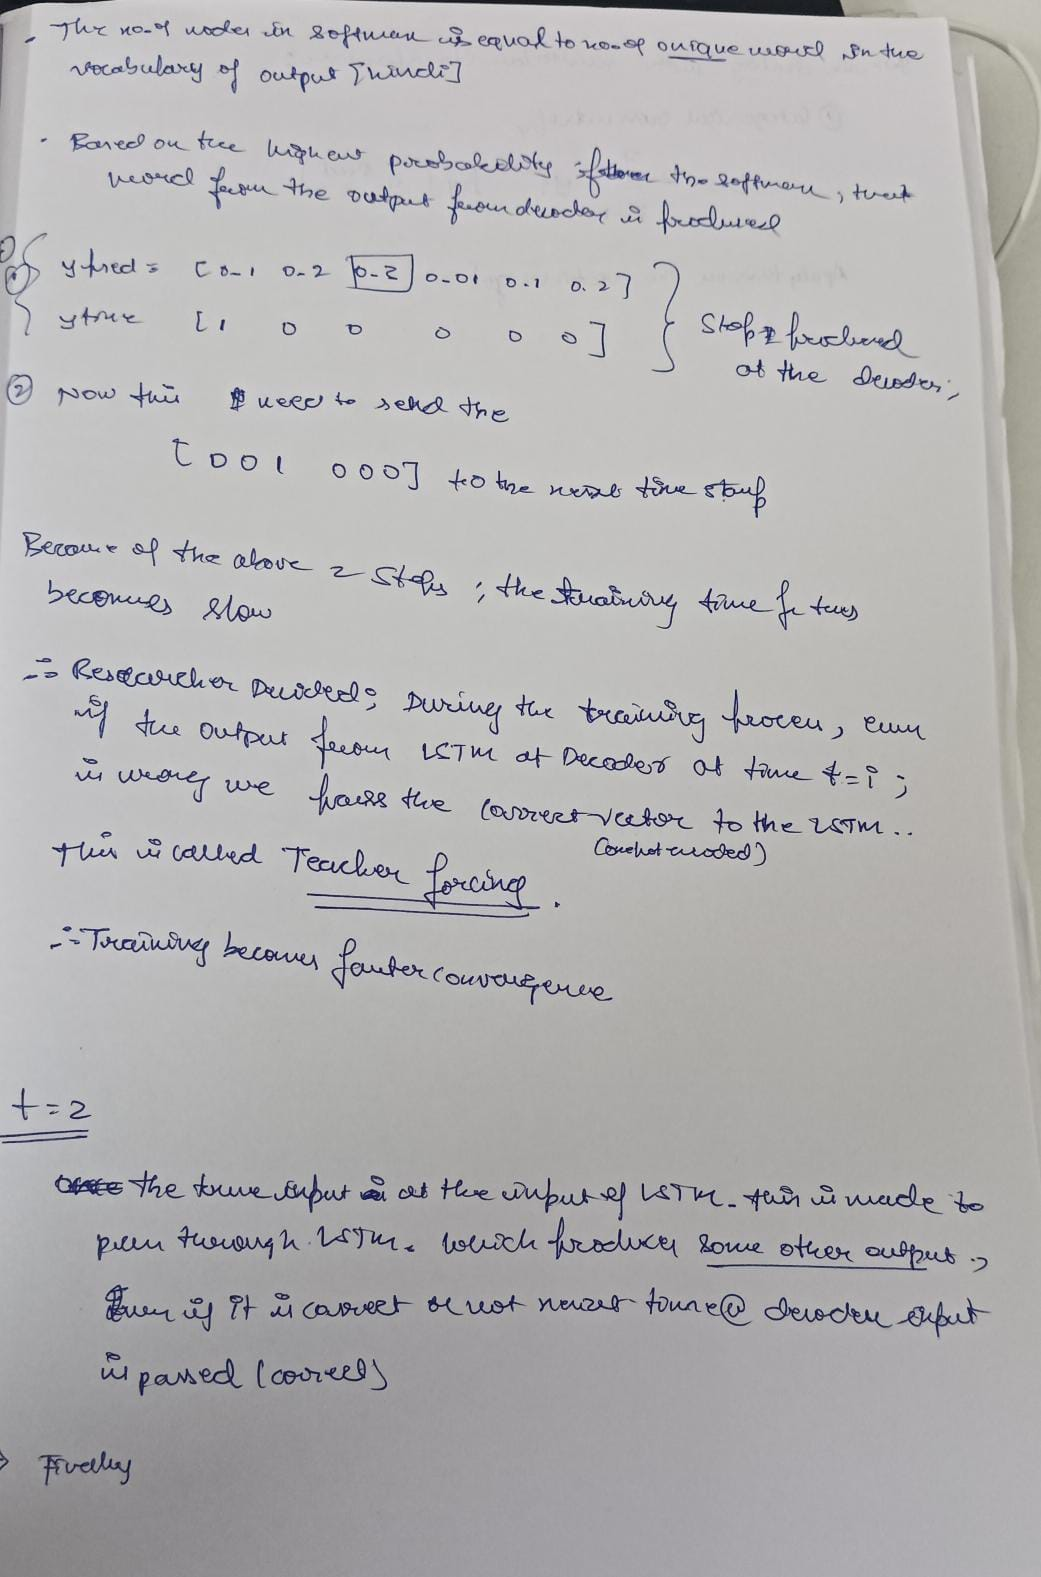 - The no. of nodes in softmax is equal to no. of unique word in the
vocabulary of output [hindi]
· Based on the highest probability from the softmax, that
word from the output from decoder is produced
① ypred = [0.1 0.2 0.2 0.01 0.1 0.2]
ytrue [1 0 0 0 0 0] } Step 1 produced
at the decoder,
② Now this need to send the
[001 000] to the next time stamp
Because of the above 2 steps ; the training time
becomes slow
∴ Researcher Decided; During the training process, even
if the output from LSTM at Decoder at time t=i ;
is wrong we pass the correct vector to the LSTM..
(onehot encoded)
This is called Teacher forcing.
∴ Training becomes faster convergence
t=2
the true input at the input of LSTM. this is made to
pass through LSTM. which produces some other output,
Even if it is correct or not next time @ decoder input
is passed (correct)
Finally